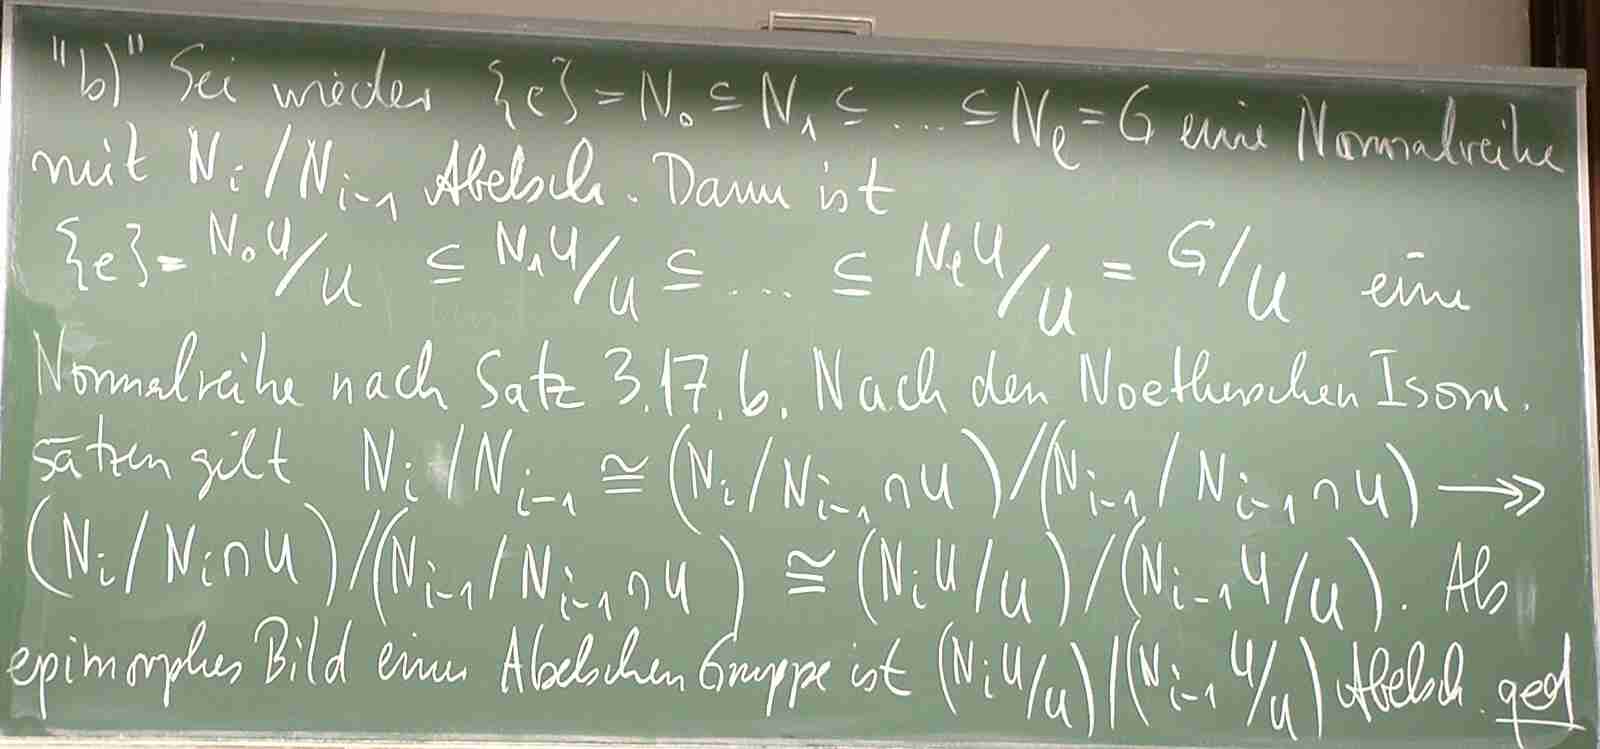 "b)" Sei wieder {e} = N₀ ⊆ N₁ ⊆ ... ⊆ Nₗ = G eine Normalreihe
mit Nᵢ/Nᵢ₋₁ Abelsch. Dann ist
{e} = N₀U/U ⊆ N₁U/U ⊆ ... ⊆ NₗU/U = G/U eine
Normalreihe nach Satz 3.17.b. Nach den Noetherschen Isom.
sätzen gilt Nᵢ/Nᵢ₋₁ ≅ (Nᵢ/Nᵢ₋₁∩U)/(Nᵢ₋₁/Nᵢ₋₁∩U) ↠
(Nᵢ/Nᵢ∩U)/(Nᵢ₋₁/Nᵢ₋₁∩U) ≅ (NᵢU/U)/(Nᵢ₋₁U/U). Als
epimorphes Bild einer Abelschen Gruppe ist (NᵢU/U)/(Nᵢ₋₁U/U) Abelsch. qed